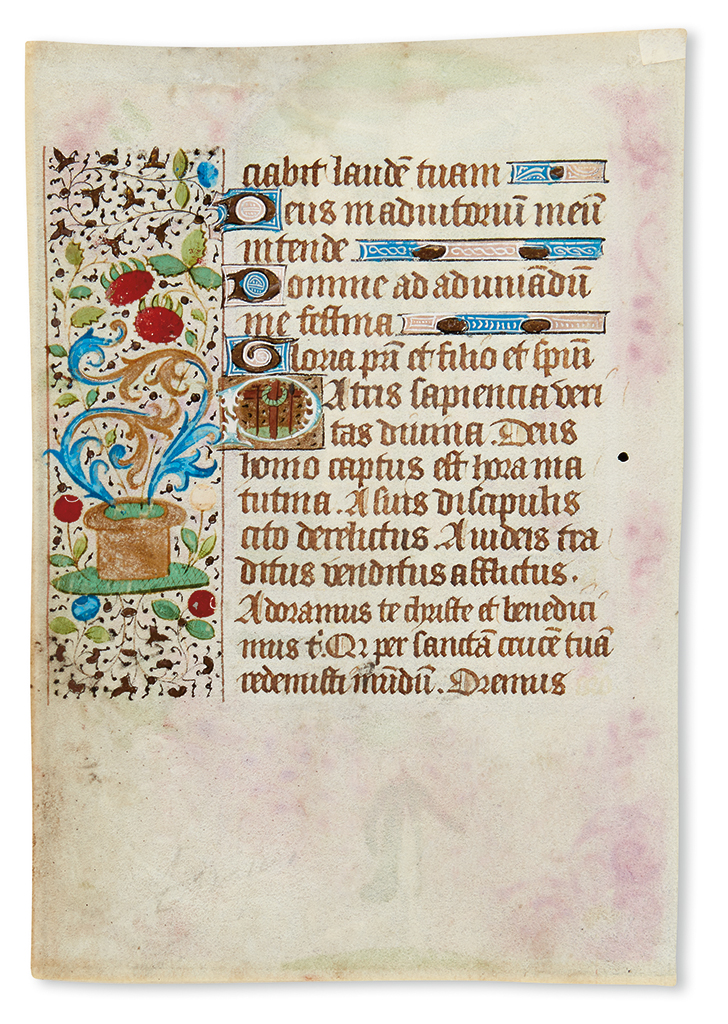 ciabit laudē tuam
Deus in adiutoriū meū
intende
Domine ad adiuuādū
me festina
Gloria pr̄i et filio et spiri
Patris sapiencia veri
tas diuina. Deus
homo captus est hora ma
tutina. A suis discipulis
cito derelictus. A iudeis tra
ditus venditus afflictus.
Adoramus te christe et benedici
mus t̄. Qr̄ per sanctā crucē tuā
redemisti mūdū. Oremus